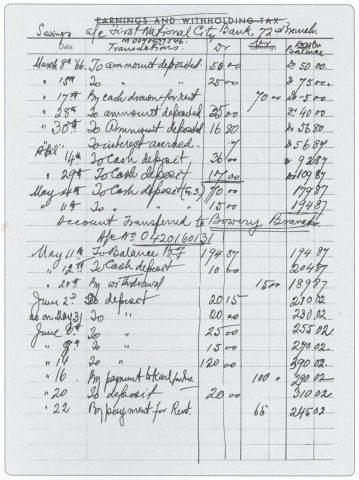 EARNINGS AND WITHHOLDING TAX
Savings a/c First National City Bank, 72nd Branch.
Date Translations. Dr Balance
March 8th '66. To ammount deposited. 50 00 50.00
" 15th To " 25 00 75.00
" 17th By cash drawn for rent 70 00 5.00
" 28th To ammount deposited 40.00
" 30th To Ammount deposited 16 80 56.80
To interest accrued. .7 56.87
April 14th To Cash deposit 36 00 92.87
" 29th To Cash deposit 17.00 109.87
May 4th To Cash deposit (G.S.) 70 00 179.87
" 11th To " " 15 00 194.87
Account Transferred to Bowery Branch.
A/c No 0420160131
May 11th To Balance B.F 194 87 194.87
" 12th To Cash deposit 10 00 204.87
" 20 By withdrawal 15 00 189.87
June 2nd To deposit 20 15 210.02
as on May 31 To " 20 00 230.02
June 8th To " 25 00 255.02
" 9th To " 15 00 270.02
" 14 To " 120 00 390.02
" 16 By payment to Karl for Inc. 100 " 290.02
" 20 To deposit 20 00 310.02
" 22 By payment for Rent. 65 245.02